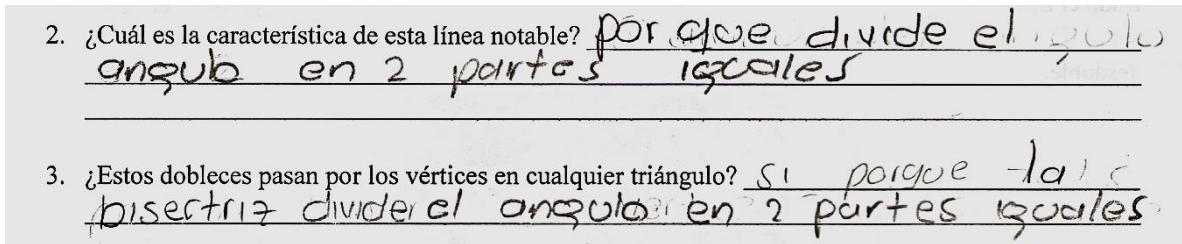 2. ¿Cuál es la característica de esta línea notable? por que divide el
angulo en 2 partes iguales
3. ¿Estos dobleces pasan por los vértices en cualquier triángulo? si porque la
bisectriz divide el angulo en 2 partes iguales